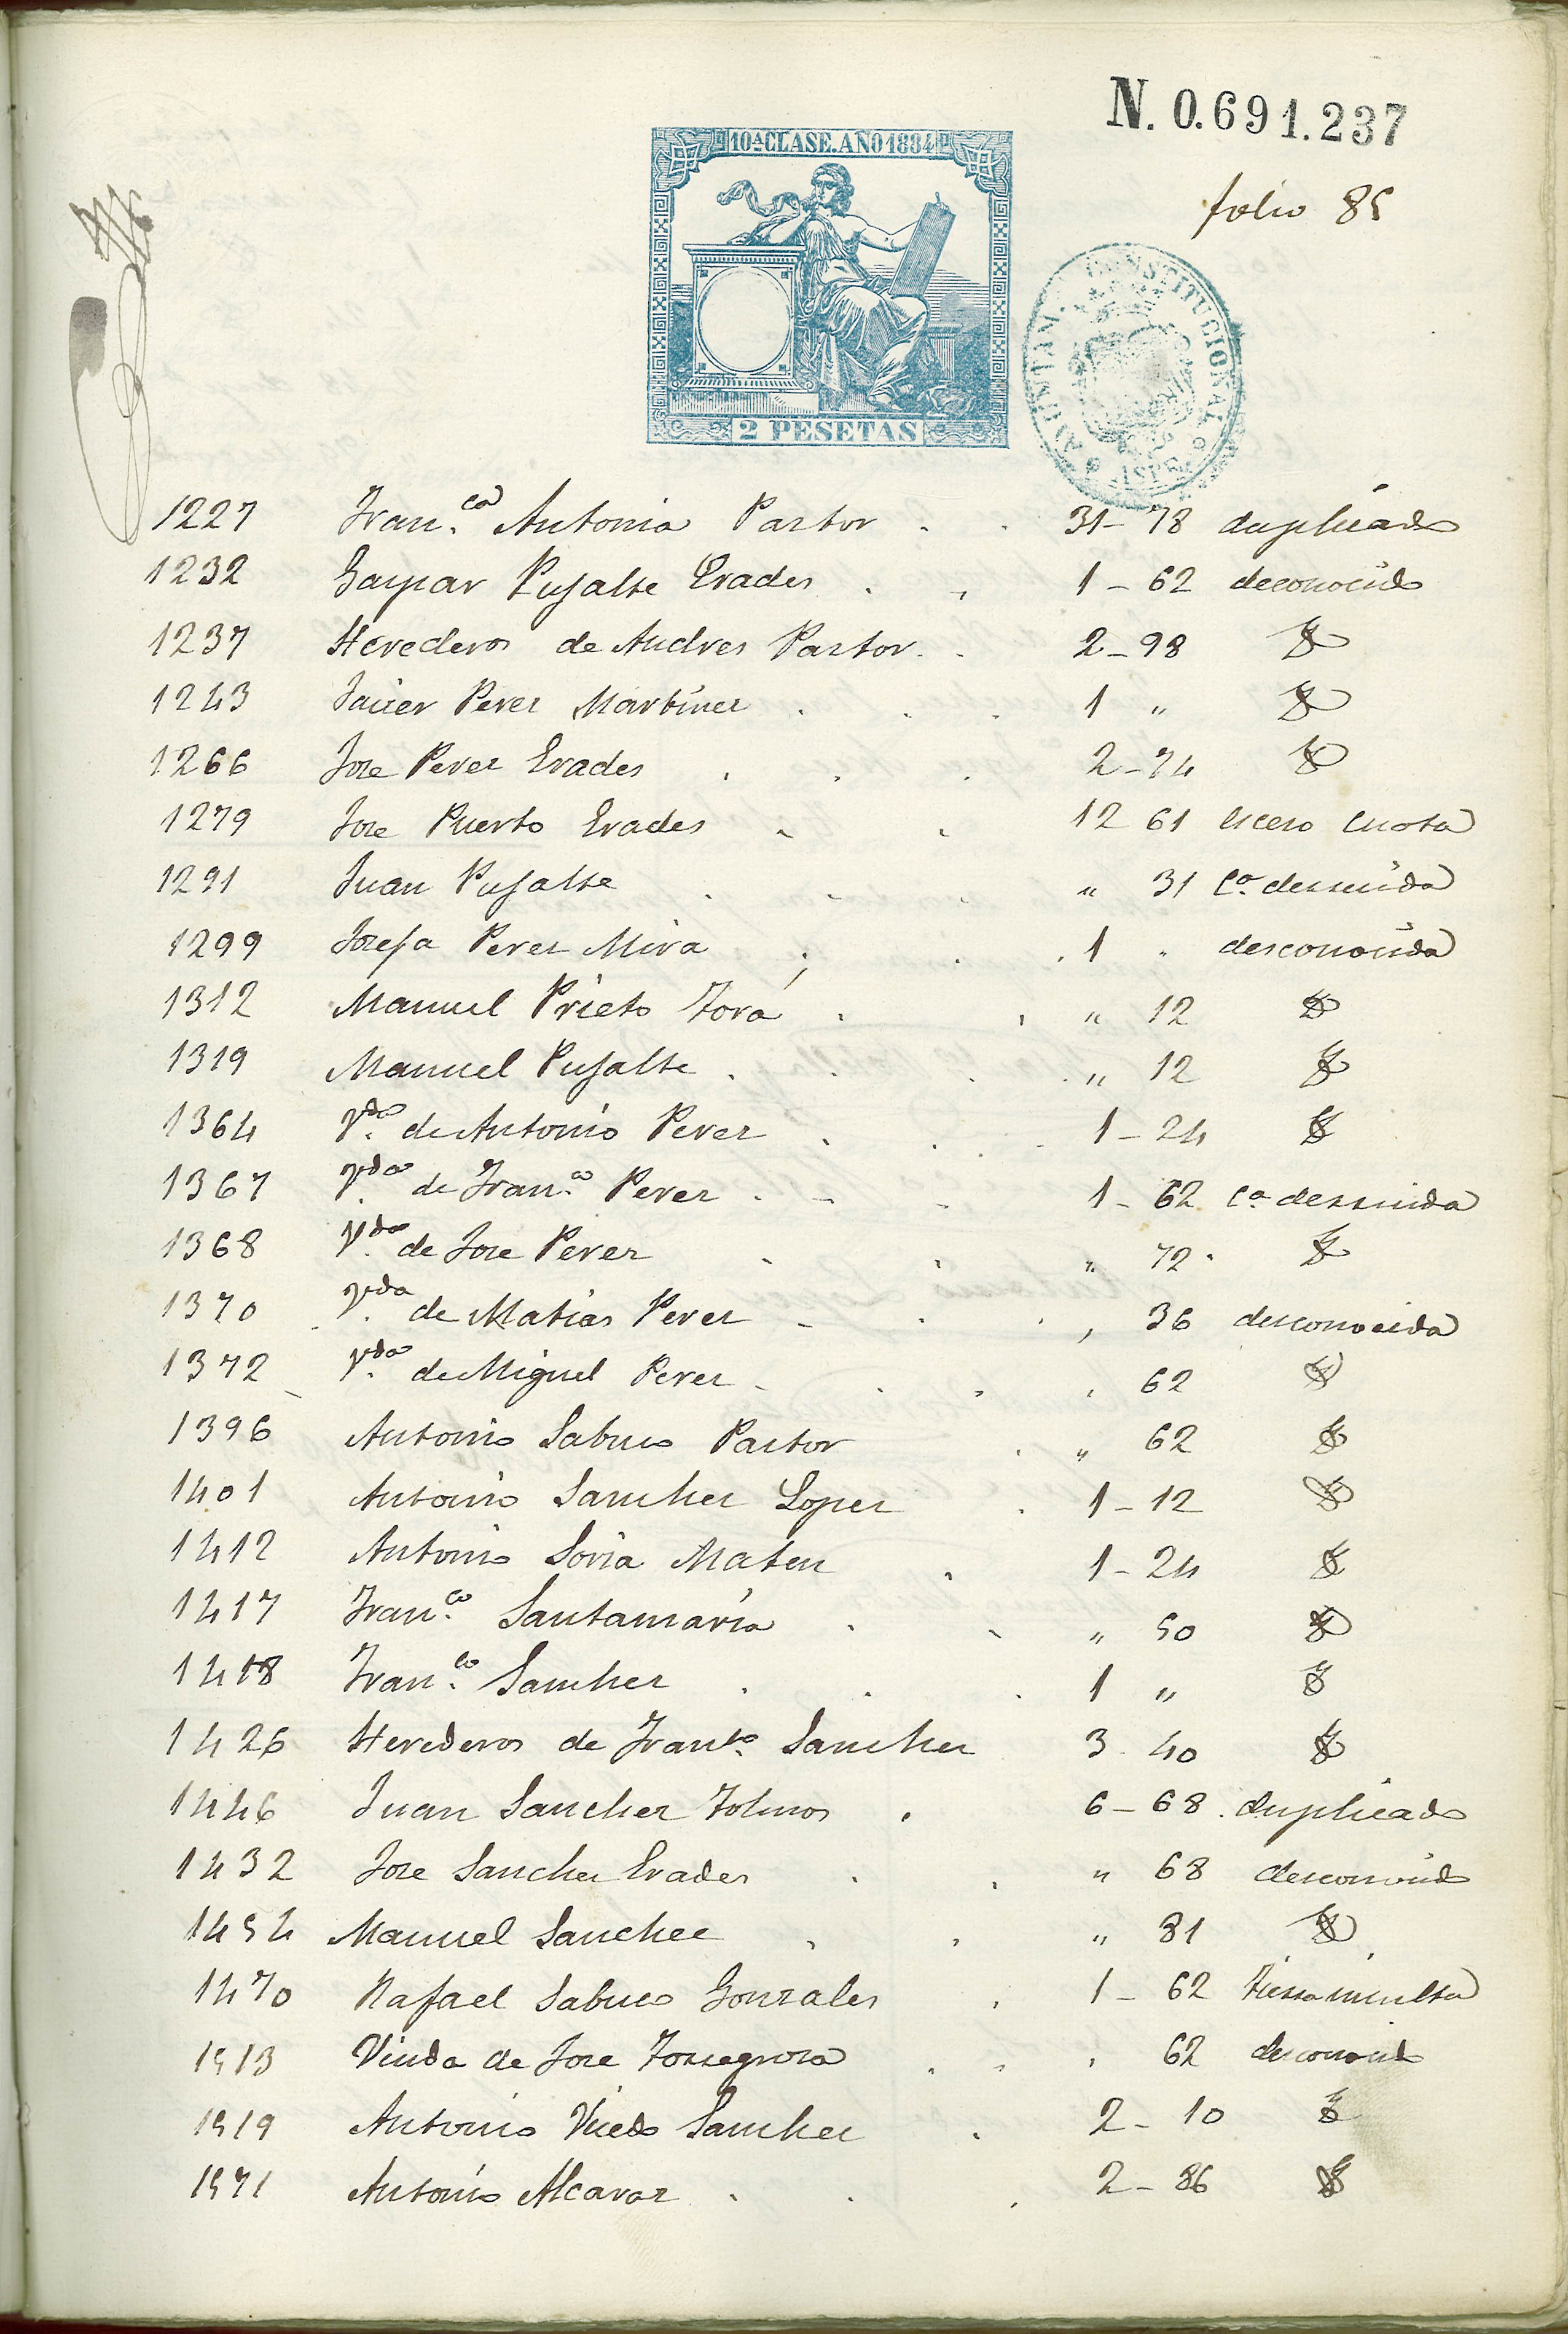 N. 0.691.237
10ª CLASE. AÑO 1884
folio 85
AYUNTAM. CONSTITUCIONAL
ASPE
2 PESETAS
1227 Fran.ca Antonia Pastor . . 31-78 duplicado
1232 Gaspar Pujalte Erades . . 1-62 deconocido
1237 Herederos de Andres Pastor . . 2-98 Y
1243 Javier Perez Martinez . . . 1 " Y
1266 Jose Perez Erades . . . 2-74 Y
1279 Jose Puerto Erades . . 12 61 esceso cuota
1291 Juan Pujalte . . . " 31 Ca. derruida
1299 Josefa Perez Mira . . . 1 " desconocida
1312 Manuel Prieto Torá . . " 12 Y
1319 Manuel Pujalte . . . . " 12 Y
1364 Vda. de Antonio Perez . . . 1-24 Y
1367 Vda. de Fran.co Perez . . . 1-62 Ca derruida
1368 Vda. de Jose Perez . . " 72. Y
1370 Vda. de Matias Perez . . . , 36 desconocida
1372 Vda. de Miguel Perez . . . , 62 Y
1396 Antonio Sabuco Pastor . " 62 Y
1401 Antonio Sanchez Lopez . 1-12 Y
1412 Antonio Soria Mateu . 1-24 Y
1417 Fran.co Santamaría . . " 50 Y
1418 Fran.co Sanchez . . . 1 " Y
1426 Herederos de Franco. Sanchez 3-40 Y
1446 Juan Sanchez Tolmos . 6-68. duplicado
1432 Jose Sanchez Erades . . " 68 desconocido
1454 Manuel Sanchez . . " 81 Y
1470 Rafael Sabuco Gonzales . 1-62 tierra inculta
1513 Viuda de Jose Torregrosa . . , 62 desconocido
1519 Antonio Vicedo Sanchez . 2-10 Y
1571 Antonio Alcaraz . . . 2-86 Y